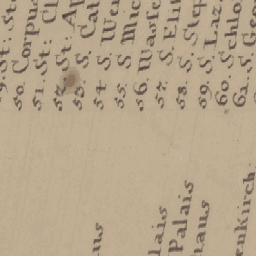 St: St
50. Corpu
51. St: Cl
52. St: Ap
53. S. Cat
54 S. We
55. S Mic
56. Wais
57. S. Eli
58. S. Step
59. S. Laz
60. Schlo
61. S. Geo
us
lais
Palais
haus
enkirch